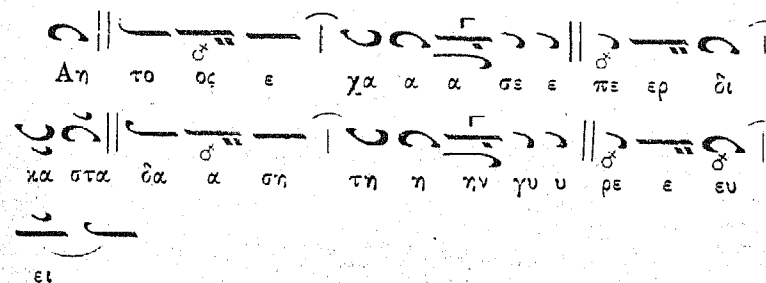 Αη το ος ε χα α α σε ε πε ερ δι
κα στα δα α ση τη η ην γυ υ ρε ε ευ
ει